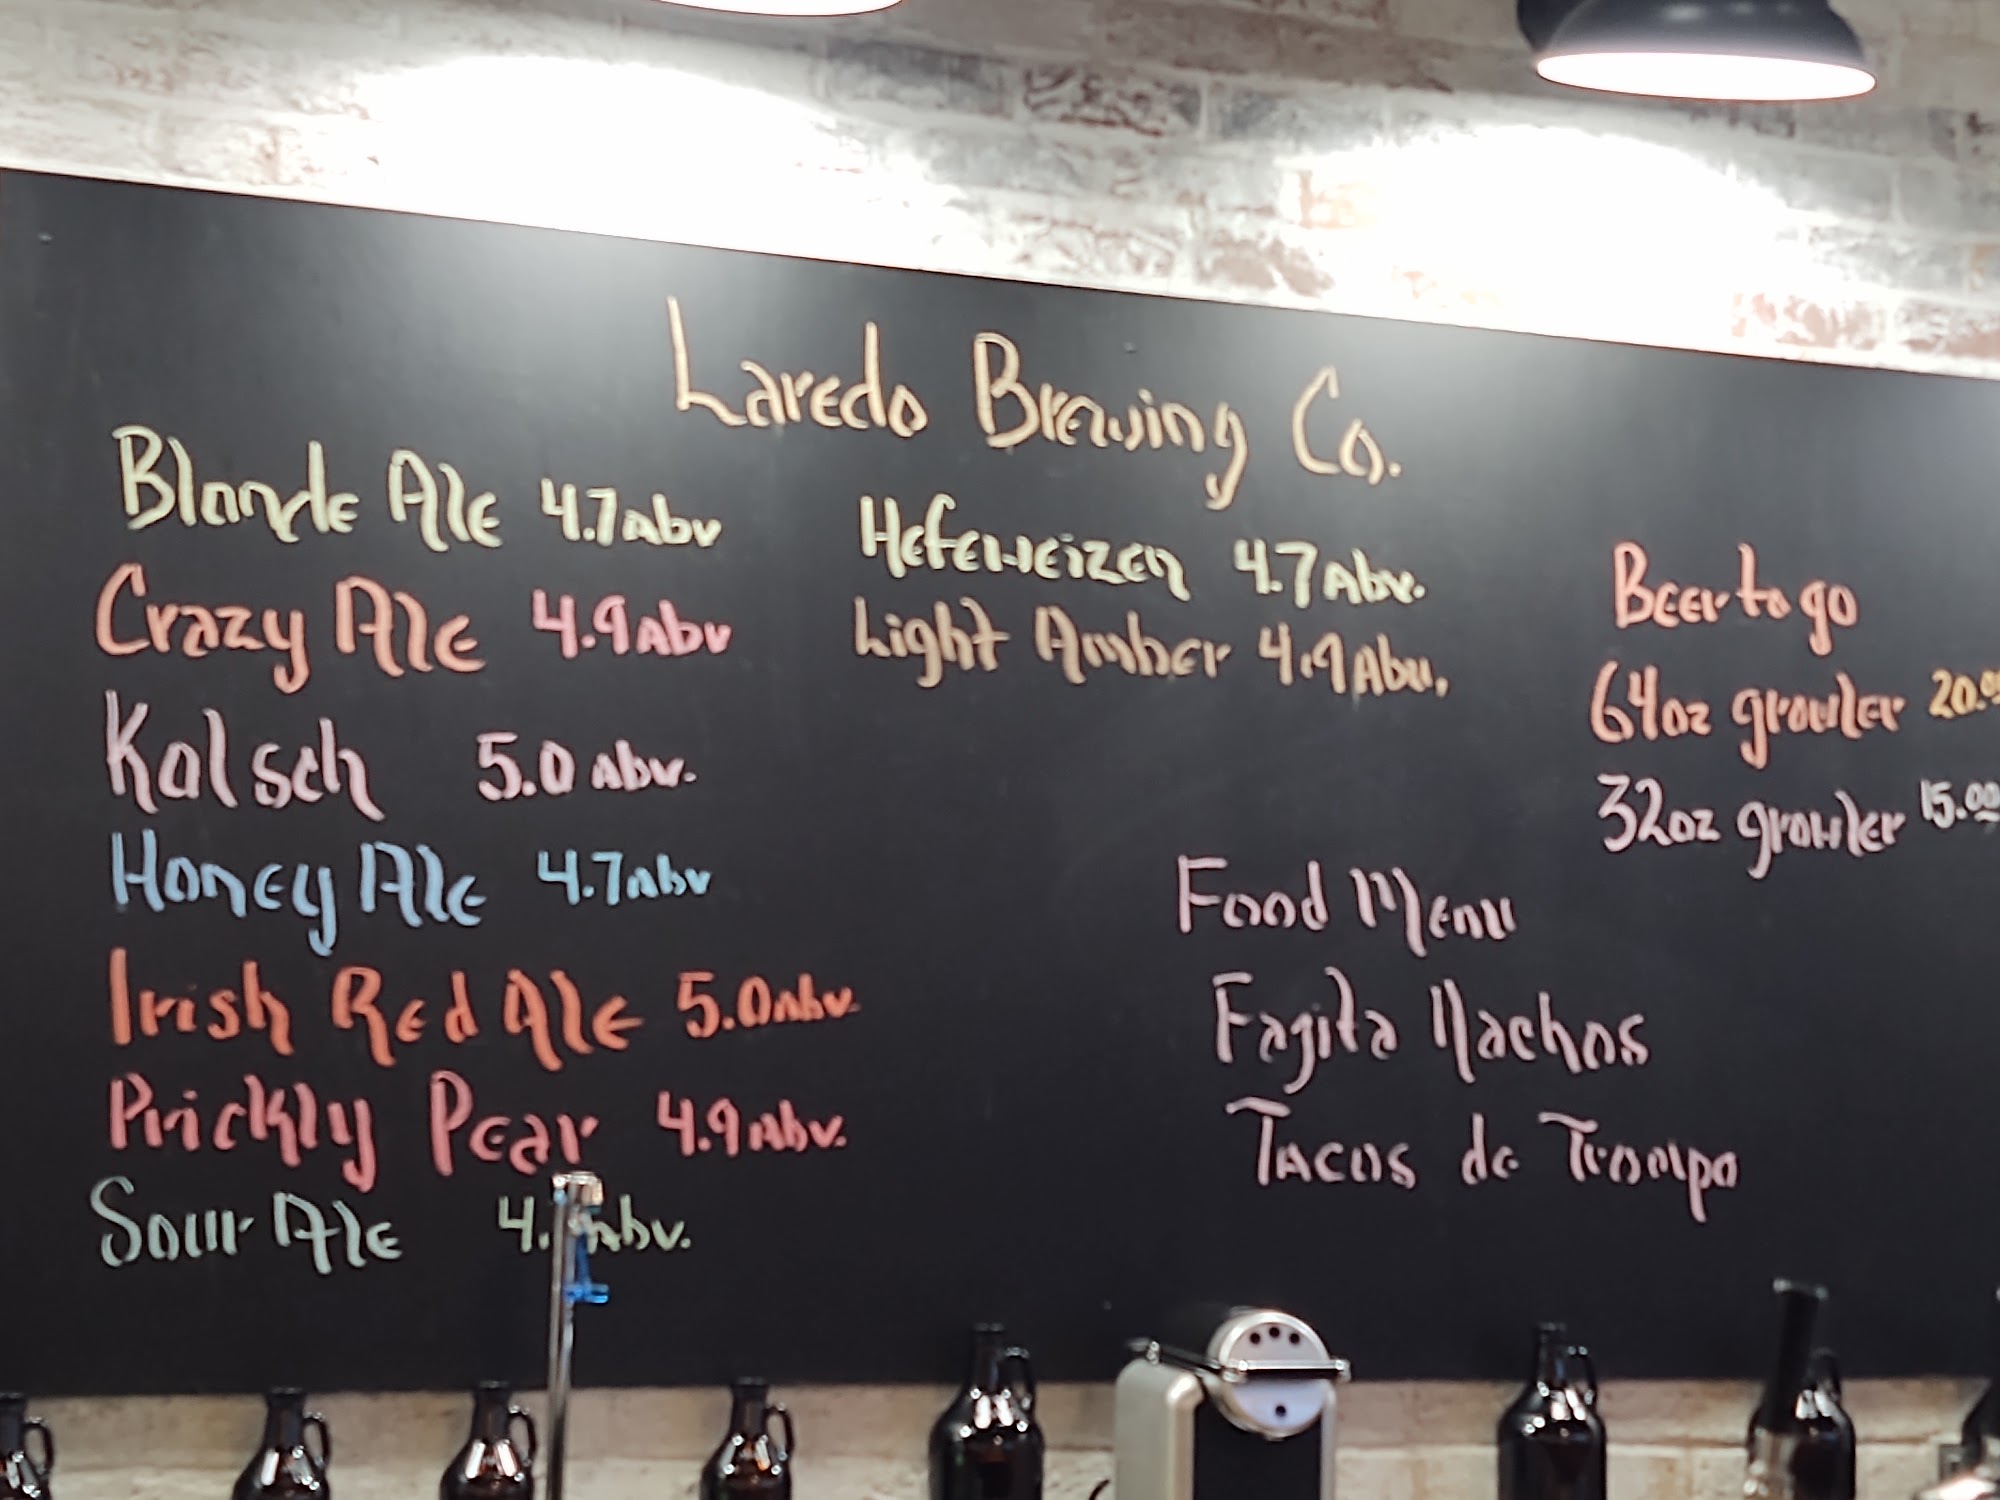 Laredo Brewing Co.
Blonde Ale 4.7 Abv
Crazy Ale 4.9 Abv
Kolsch 5.0 Abv.
Honey Ale 4.7 Abv
Irish Red Ale 5.0 Abv.
Prickly Pear 4.9 Abv.
Sour Ale Abv.
Hefeweizen 4.7 Abv.
Light Amber 4.9 Abv.
Beer to go
64oz growler 20.00
32oz growler 15.00
Food Menu
Fajita Nachos
Tacos de Trompo